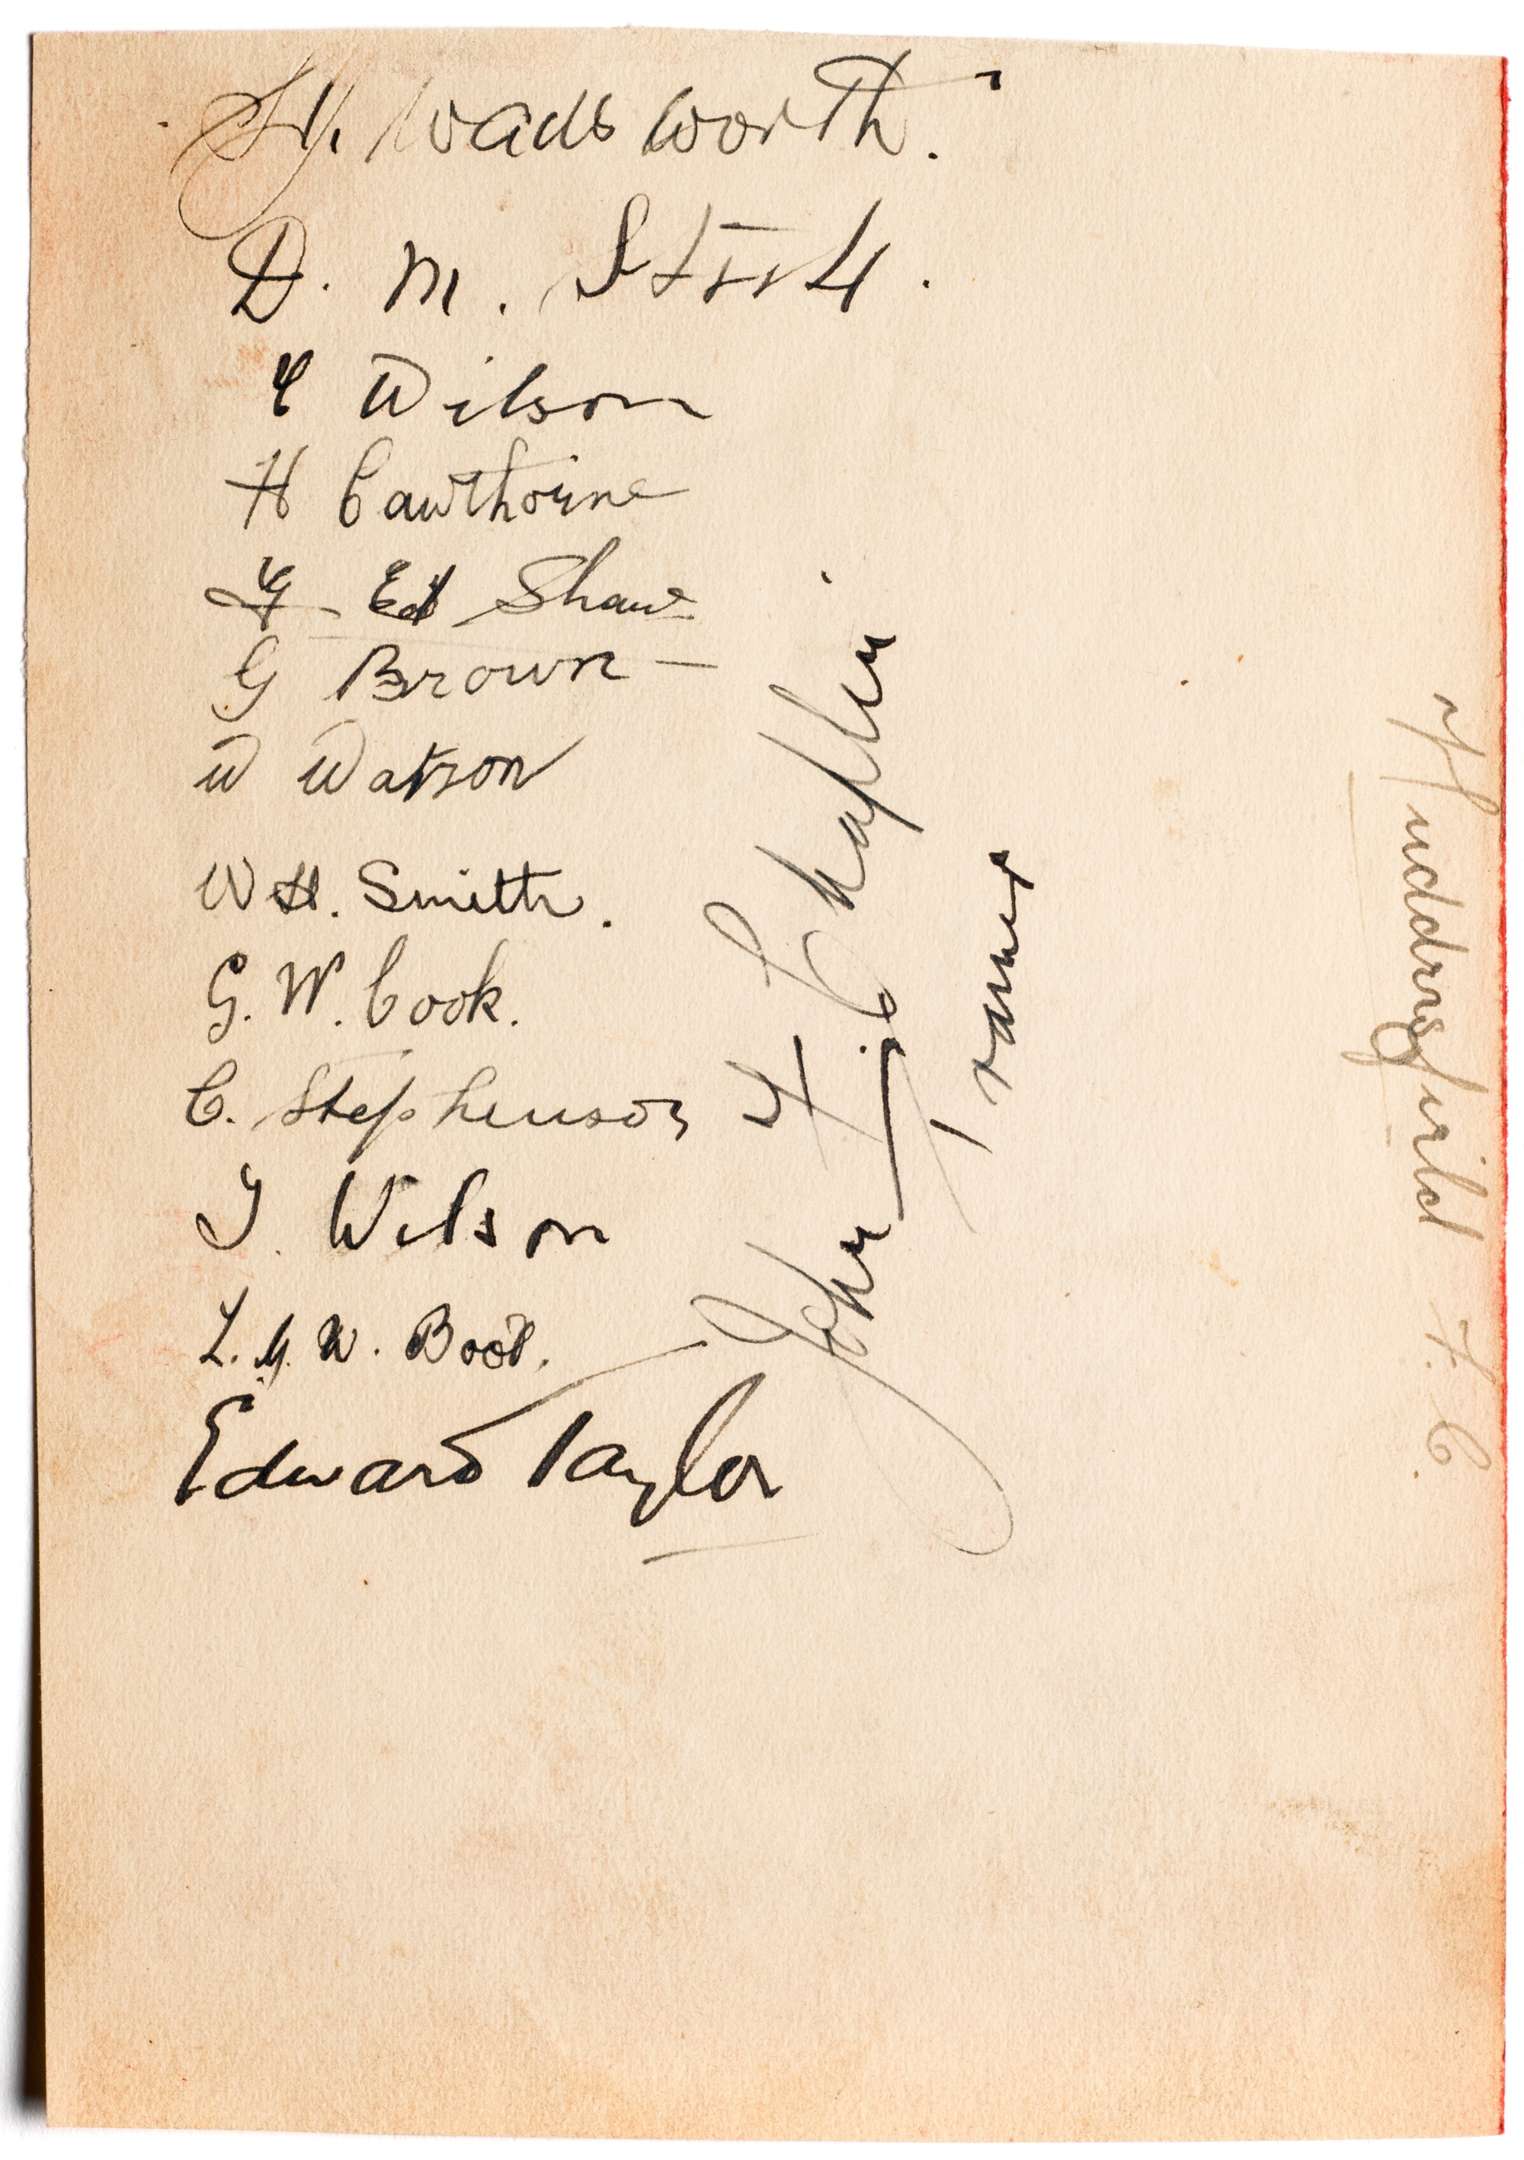 S.J. Wadsworth.
D. M. Steele.
E Wilson
H Cawthorne
G. Ed Shaw
G Brown
W Watson
W H. Smith.
G. W. Cook.
C. Stephenson
J. Wilson
Boot.
Edward Taylor
John F. Chaplin
Trainer
Huddersfield F. C.